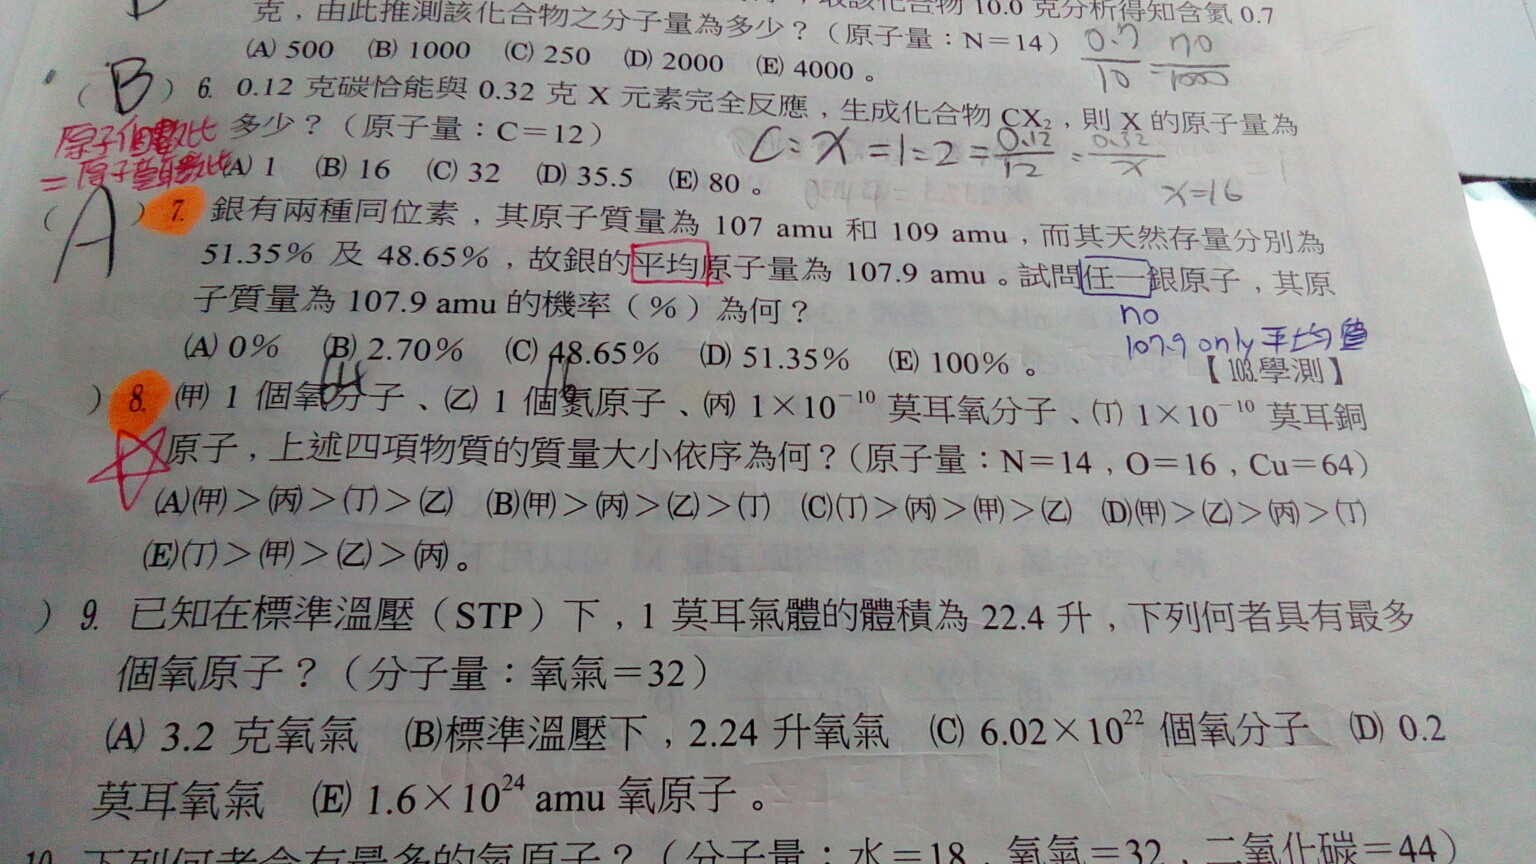 克，由此推測該化合物之分子量為多少？（原子量：N＝14）
化合物 10.0 克分析得知含氮 0.7
(A) 500 (B) 1000 (C) 250 (D) 2000 (E) 4000。
0.7/10 70/1000
(B) 6. 0.12 克碳恰能與 0.32 克 X 元素完全反應，生成化合物 CX₂，則 X 的原子量為
多少？（原子量：C＝12）
原子個數比
C:X=1:2=0.12/12:0.32/x
(A) 1 (B) 16 (C) 32 (D) 35.5 (E) 80。
x=16
(A) 7. 銀有兩種同位素，其原子質量為 107 amu 和 109 amu，而其天然存量分別為
51.35% 及 48.65%，故銀的平均原子量為 107.9 amu。試問任一銀原子，其原
子質量為 107.9 amu 的機率（%）為何？
no
107.9 only 平均量
(A) 0% (B) 2.70% (C) 48.65% (D) 51.35% (E) 100%。
【103.學測】
) 8. (甲) 1 個氧分子、(乙) 1 個氮原子、(丙) 1×10⁻¹⁰ 莫耳氧分子、(丁) 1×10⁻¹⁰ 莫耳銅
原子，上述四項物質的質量大小依序為何？（原子量：N＝14，O＝16，Cu＝64）
(A)(甲)＞(丙)＞(丁)＞(乙) (B)(甲)＞(丙)＞(乙)＞(丁) (C)(丁)＞(丙)＞(甲)＞(乙) (D)(甲)＞(乙)＞(丙)＞(丁)
(E)(丁)＞(甲)＞(乙)＞(丙)。
) 9. 已知在標準溫壓（STP）下，1 莫耳氣體的體積為 22.4 升，下列何者具有最多
個氧原子？（分子量：氧氣＝32）
(A) 3.2 克氧氣 (B)標準溫壓下，2.24 升氧氣 (C) 6.02×10²² 個氧分子 (D) 0.2
莫耳氧氣 (E) 1.6×10²⁴ amu 氧原子。
10. 下列何者含有最多的氧原子？（分子量：水＝18，氧氣＝32，二氧化碳＝44）